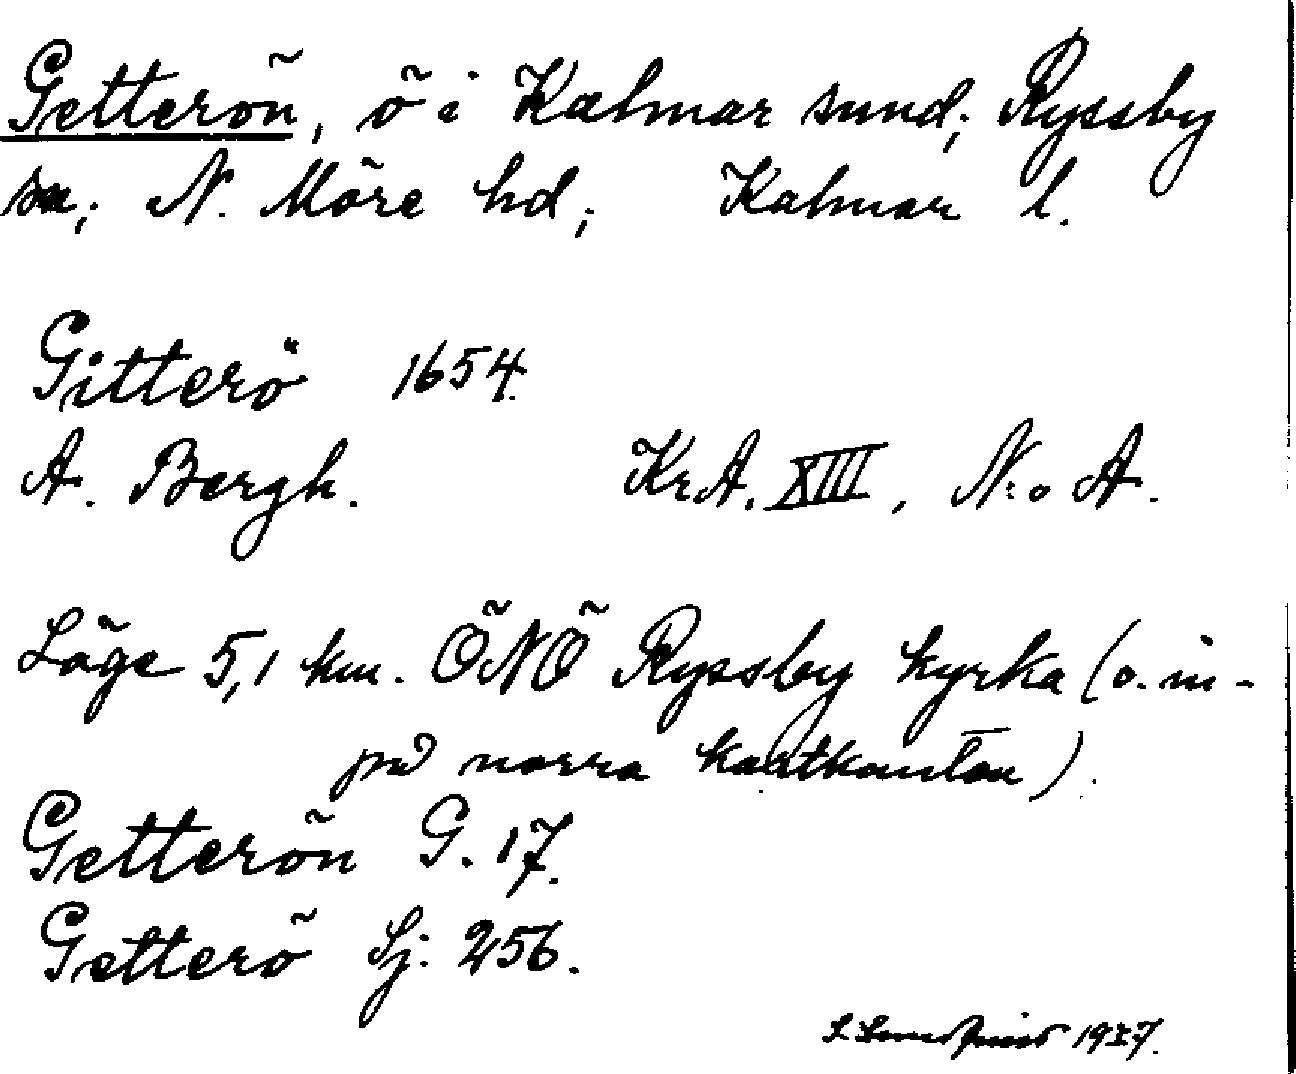 Getterön, ö i Kalmar sund; Ryssby
sn; N. Möre hd; Kalmar l.
Gitterö 1654.
A. Bergh. KrA. XIII, N:o A.
Läge 5,1 km. ÖNÖ Ryssby kyrka (o. in-
på norra kartkanten).
Getterön G. 17.
Getterö Sj. 256.